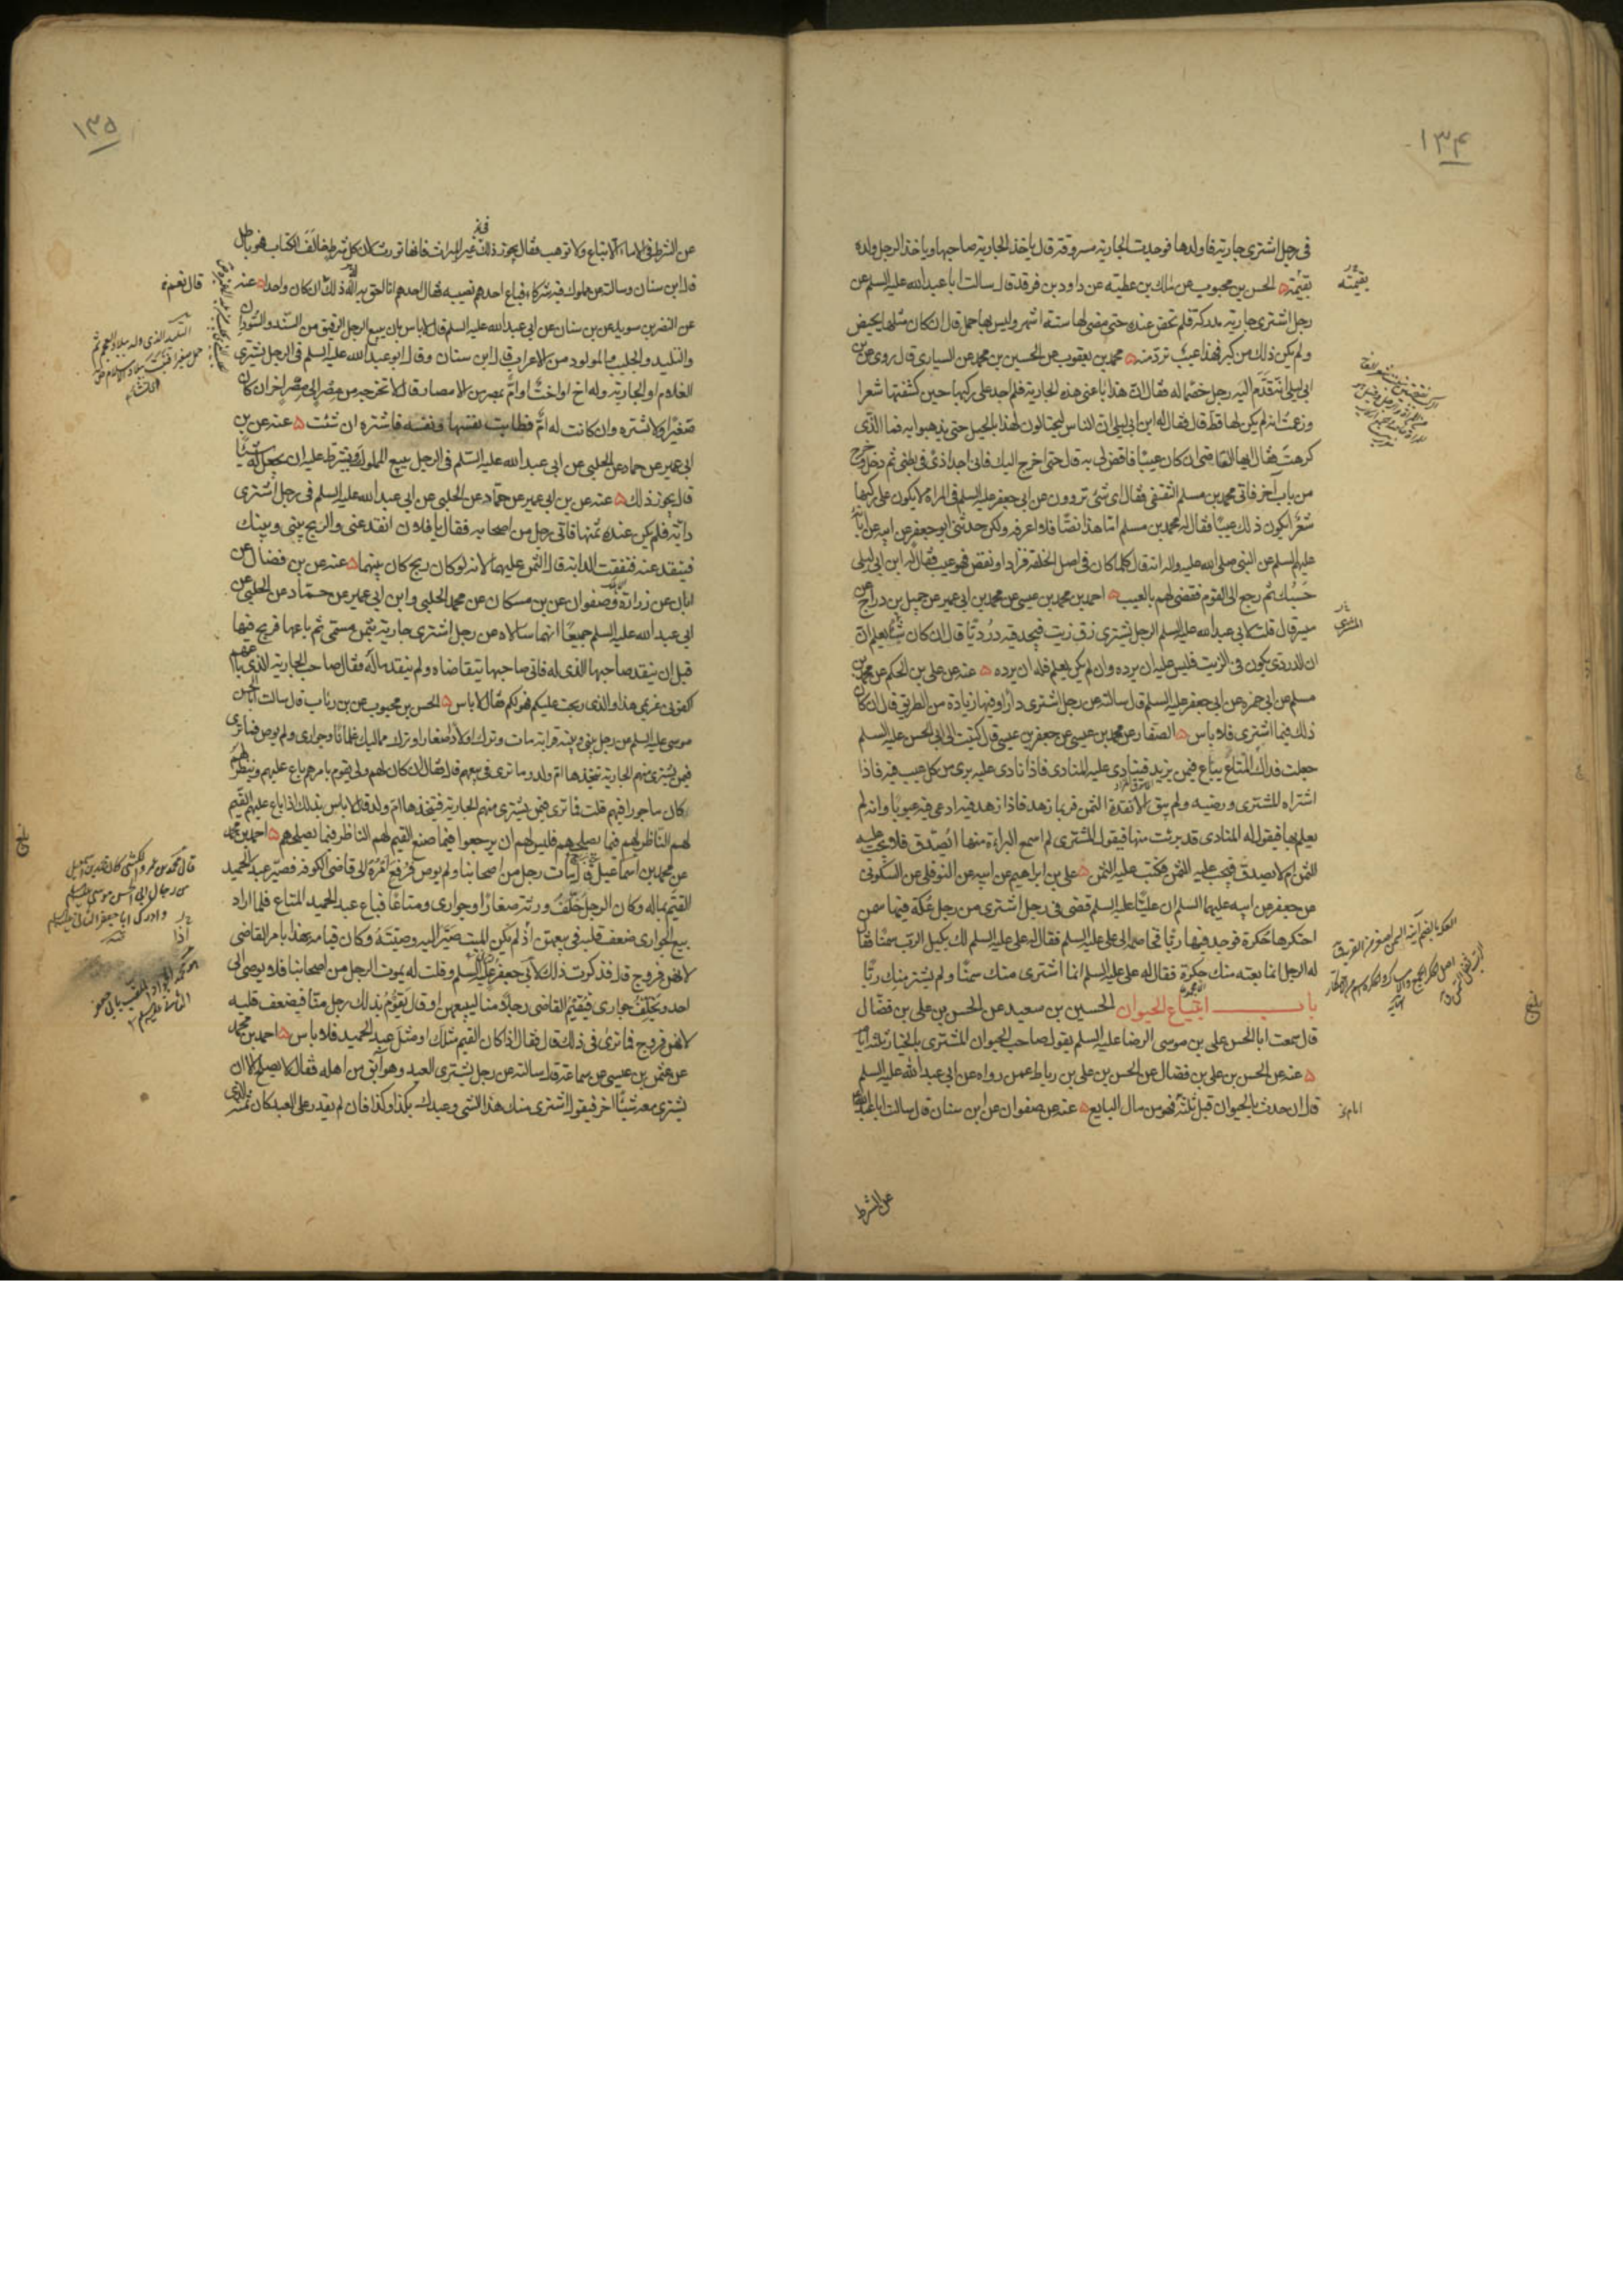 ١٣٤
في رجل اشترى جارية فاولدها فوجدت الجارية مسروقة قال ياخذ الجارية صاحبها وياخذ الرجل ولده
بقيمته الحسن بن محبوب عن مالك بن عطية عن داود بن فرقد قال سالت ابا عبد الله عليه السلم عن
رجل اشترى جارية مدركة فلم تحض عنده حتى مضى لها ستة اشهر وليس بها حمل قال ان كان مثلها يحيض
ولم يكن ذلك من كبر فهذا عيب ترد منه محمد بن يعقوب عن الحسين بن محمد عن السياري قال روى عن بن
ابي ليلى انه قدم اليه رجل خصما له فقال ان هذا باعني هذه الجارية فلم اجد على ركبها حين كشفتها شعرا
وزعمت انه لم يكن لها قط قال فقال له ابن ابي ليلى ان الناس ليحتالون لهذا بالحيل حتى يذهبوا به فما الذي
كرهت فقال ايها القاضي ان كان عيبا فاقض لي به قال حتى اخرج اليك فاني اجد اذى في بطني ثم دخل وخرج
من باب آخر فاتى محمد بن مسلم الثقفي فقال اي شيء تروون عن ابي جعفر عليه السلم في المراة لا يكون على ركبها
شعر ايكون ذلك عيبا فقال له محمد بن مسلم اما هذا نصا فلا اعرفه ولكن حدثني ابو جعفر عن ابيه عن آبائه
عليهم السلم عن النبي صلى الله عليه واله انه قال كلما كان في اصل الخلقة فزاد او نقص فهو عيب فقال له ابن ابي ليلى
حسبك ثم رجع الى القوم فقضى لهم بالعيب احمد بن محمد بن عيسى عن محمد بن ابي عمير عن جميل بن دراج عن
ميسر قال قلت لابي عبد الله عليه السلم الرجل يشترى زق زيت فيجد فيه درديا قال ان كان شيئا يعلم ان
ان الدردي يكون في الزيت فليس عليه ان يرده وان لم يكن يعلم فله ان يرده عنه عن علي بن الحكم عن محمد بن
مسلم عن ابي حمزة عن ابي جعفر عليه السلم قال سالته عن رجل اشترى دارا وفيها زيادة من الطريق قال ان كان
ذلك فيما اشترى فلا باس الصفار عن محمد بن عيسى عن جعفر بن عيسى قال كتبت الى ابي الحسن عليه السلم
جعلت فداك المتاع يباع فيمن يزيد فينادى عليه المنادي فاذا نادى عليه برئ من كل عيب فيه فاذا
اشتراه المشترى ورضيه ولم يبق الا نقده الثمن فربما زهد فاذا زهد فيه ادعى فيه عيوبا وانه لم
يعلم بها فيقول له المنادي قد برئت منها فيقول المشترى لم اسمع البراءة منها ايصدق فلا يجب عليه
الثمن ام لا يصدق فيجب عليه الثمن فكتب عليه الثمن علي بن ابراهيم عن ابيه عن النوفلي عن السكوني
عن جعفر عن ابيه عليهما السلم ان عليا عليه السلم قضى في رجل اشترى من رجل عكة فيها سمن
احتكرها حكرة فوجد فيها ربا فخاصمه الى علي عليه السلم فقال له علي عليه السلم لك بكيل الرب سمنا فقال
له الرجل انما بعته منك حكرة فقال له علي عليه السلم انما اشترى منك سمنا ولم يشتر منك ربا
باب ابتياع الحيوان الحسين بن سعيد عن الحسن بن علي بن فضال
قال سمعت ابا الحسن علي بن موسى الرضا عليه السلم يقول صاحب الحيوان المشترى بالخيار ثلثة ايام
عنه عن الحسن بن علي بن فضال عن الحسن بن علي بن رباط عمن رواه عن ابي عبد الله عليه السلم
قال ان حدث بالحيوان قبل ثلثة فهو من مال البايع عنه عن صفوان عن ابن سنان قال سالت ابا عبد الله
عن الشرط
بقيمته
المشترى
بلغ
١٣٥
عن الشرط في الاماء الا تباع ولا توهب فقال يجوز ذلك غير الميراث فانها تورث لان كل شرط خالف الكتاب فهو باطل
قال ابن سنان وسالته عن مملوك فيه شركاء فباع احدهم نصيبه فقال احدهم انا احق به اله ذلك ان كان واحدا عنه
قال نعم
عن النضر بن سويد عن بن سنان عن ابي عبد الله عليه السلم قال لا باس بان يبيع الرجل الرقيق من السند والسودان
والتليد والجليب والمولود من الاعراب قال ابن سنان وقال ابو عبد الله عليه السلم في الرجل يشترى
الغلام او الجارية وله اخ او اخت او ام بمصر من الامصار قال لا تخرجه من مصر الى مصر اخر ان كان
صغيرا ولا تشتره وان كانت له ام فطابت نفسها ونفسه فاشتره ان شئت عنه عن بن
ابي عمير عن حماد عن الحلبي عن ابي عبد الله عليه السلم في الرجل يبيع المملوك ويشترط عليه ان يجعل له شيئا
قال يجوز ذلك عنه عن بن ابي عمير عن حماد عن الحلبي عن ابي عبد الله عليه السلم في رجل اشترى
دابة فلم يكن عنده ثمنها فاتى رجل من اصحابه فقال يا فلان انقد عني والربح بيني وبينك
فينقد عنه فنفقت الدابة قال الثمن عليهما لانه لو كان ربح كان بينهما عنه عن بن فضال عن
ابان عن زرارة وصفوان عن بن مسكان عن محمد الحلبي وابن ابي عمير عن حماد عن الحلبي عن
ابي عبد الله عليه السلم جميعا انهما سالاه عن رجل اشترى جارية بثمن مسمى ثم باعها فربح فيها
قبل ان ينقد صاحبها الذي له فاتى صاحبها يتقاضاه ولم ينقد ماله فقال صاحب الجارية الذي باعهم
اكفوني غريمي هذا والذي ربحت عليكم فهو لكم فقال لا باس الحسن بن محبوب عن بن رئاب قال سالت ابا الحسن
موسى عليه السلم عن رجل بيني وبينه قرابة مات وترك اولادا صغارا وترك مماليك غلمانا وجواري ولم يوص فما ترى
فيمن يشترى منهم الجارية يتخذها ام ولد وما ترى في بيعهم قال فقال ان كان لهم ولي يقوم بامرهم باع عليهم ونظر لهم
كان ماجورا فيهم قلت فما ترى فيمن يشترى منهم الجارية فيتخذها ام ولد قال لا باس بذلك اذا باع عليهم القيم
لهم الناظر لهم فيما يصلحهم فليس لهم ان يرجعوا فيما صنع القيم لهم الناظر فيما يصلحهم احمد بن محمد
عن محمد بن اسماعيل قال مات رجل من اصحابنا ولم يوص فرفع امره الى قاضي الكوفة فصير عبد الحميد
القيم بماله وكان الرجل خلف ورثة صغارا وجواري ومتاعا فباع عبد الحميد المتاع فلما اراد
بيع الجواري ضعف قلبه في بيعهن اذ لم يكن الميت صير اليه وصيته وكان قيامه بهذا بامر القاضي
لانهن فروج قال فذكرت ذلك لابي جعفر عليه السلم وقلت له يموت الرجل من اصحابنا فلا يوصي الى
احد ويخلف جواري فيقيم القاضي رجلا منا ليبيعهن او قال يقوم بذلك رجل منا فيضعف قلبه
لانهن فروج فما ترى في ذلك قال فقال اذا كان القيم مثلك او مثل عبد الحميد فلا باس احمد بن محمد
عن عثمن بن عيسى عن سماعة قال سالته عن رجل يشترى العبد وهو آبق من اهله فقال لا يصلح الا ان
يشترى معه شيئا اخر فيقول اشترى منك هذا الشي وعبدك بكذا وكذا فان لم يقدر على العبد كان ثمنه الذي
بلغ